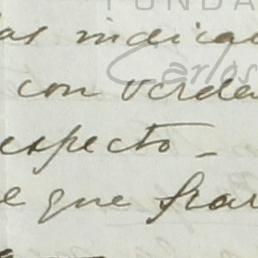 FUNDA
as indica
Carlos
con verda
especto -
e que fra